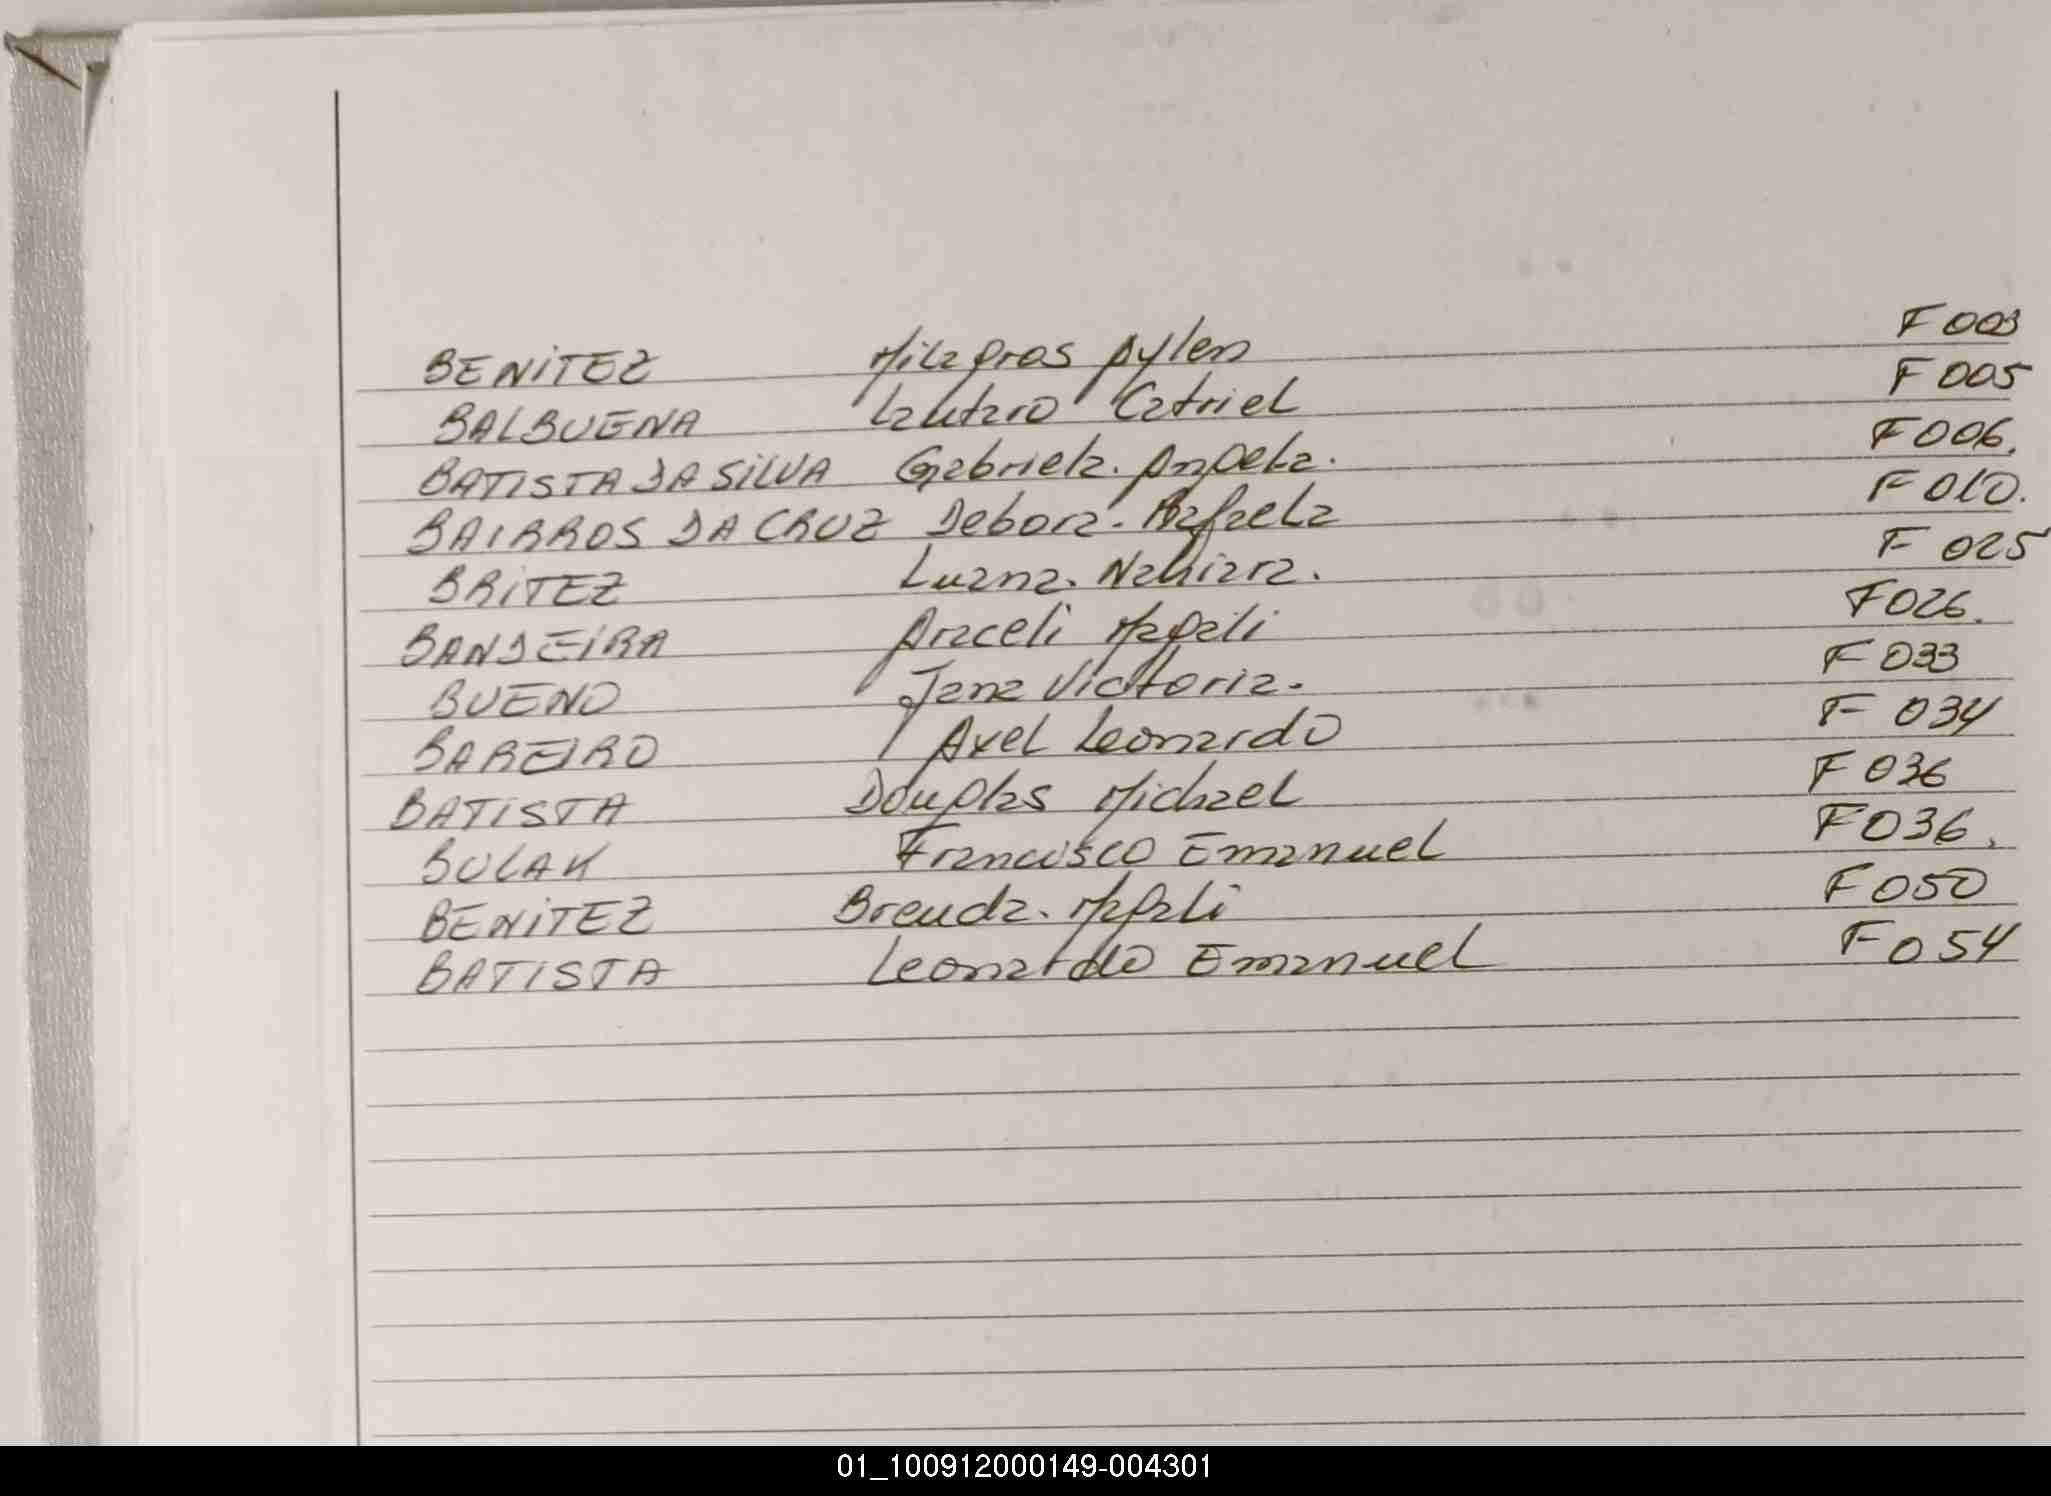 BENITEZ Milagros Aylen F 003
BALBUENA Lautaro Catriel F 005
BATISTA DA SILVA Gabriela. Angela. F 006.
BAIRROS DA CRUZ Debora. Rafaela F 010.
BRITEZ Luana. Nahiara. F 025
BANDEIRA Araceli Magali F 026.
BUENO Jana Victoria. F 033
BAREIRO Axel Leonardo F 034
BATISTA Douglas Michael F 036
BULAK Francisco Emanuel F 036.
BENITEZ Brenda. Magali F 050
BATISTA Leonardo Emanuel F 054
01_100912000149-004301